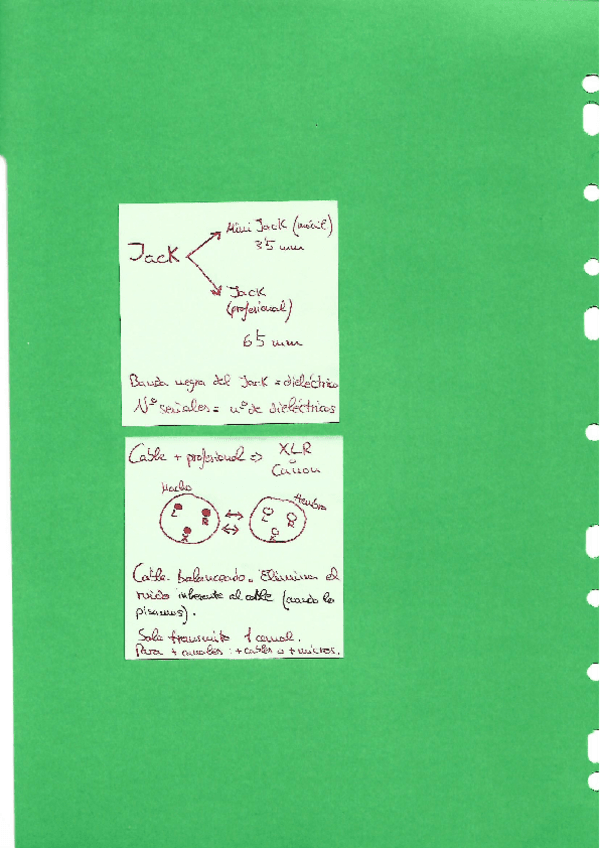 Jack
Mini Jack (móvil)
35 mm
Jack
(profesional)
65 mm
Banda negra del Jack = dieléctrico
Nº señales = nº de dieléctricos
Cable + profesional => XLR
o
Canon
Macho
Hembra
L R
X
L R
X
Cable Balanceado. Elimina el
ruido inherente al cable (cuando lo
pisamos).
Solo transmite 1 canal.
Para + canales: + cables o + micros.